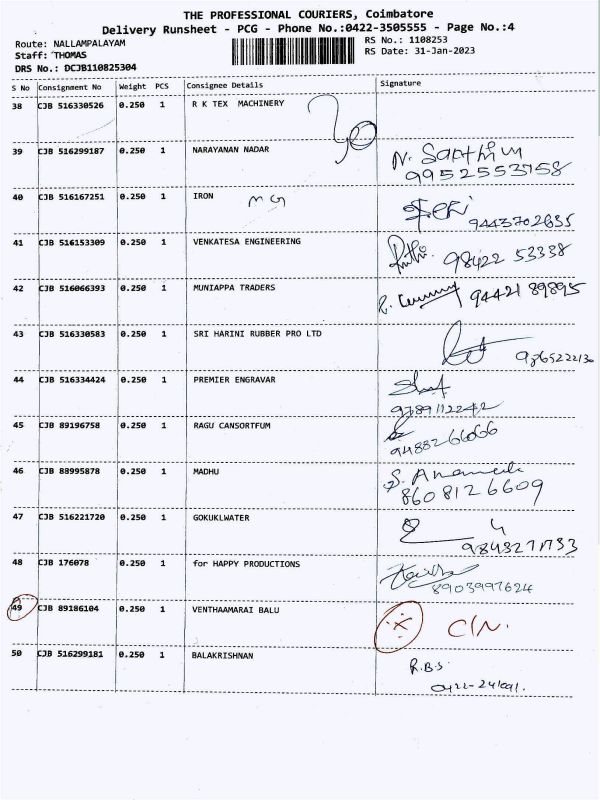 THE PROFESSIONAL COURIERS, Coimbatore
Delivery Runsheet - PCG - Phone No.:0422-3505555 - Page No.:4
Route: NALLAMPALAYAM
RS No.: 1108253
Staff: THOMAS
RS Date: 31-Jan-2023
DRS No.: DCJB110825304
S No Consignment No Weight PCS Consignee Details Signature
38 CJB 516330526 0.250 1 R K TEX MACHINERY
39 CJB 516299187 0.250 1 NARAYANAN NADAR
9952553758
40 CJB 516167251 0.250 1 IRON
9443702635
41 CJB 516153309 0.250 1 VENKATESA ENGINEERING 98422 53338
42 CJB 516066393 0.250 1 MUNIAPPA TRADERS 94421 89895
43 CJB 516330583 0.250 1 SRI HARINI RUBBER PRO LTD
44 CJB 516334424 0.250 1 PREMIER ENGRAVAR
9789112242
45 CJB 89196758 0.250 1 RAGU CANSORTFUM
9488266666
46 CJB 88995878 0.250 1 MADHU
8608126609
47 CJB 516221720 0.250 1 GOKUKLWATER
48 CJB 176078 0.250 1 for HAPPY PRODUCTIONS
8903997624
49 CJB 89186104 0.250 1 VENTHAAMARAI BALU C/N.
50 CJB 516299181 0.250 1 BALAKRISHNAN R.B.S.